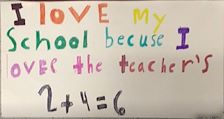 I lOVE My
School becuse I
OVER the teacher's
2+4=6